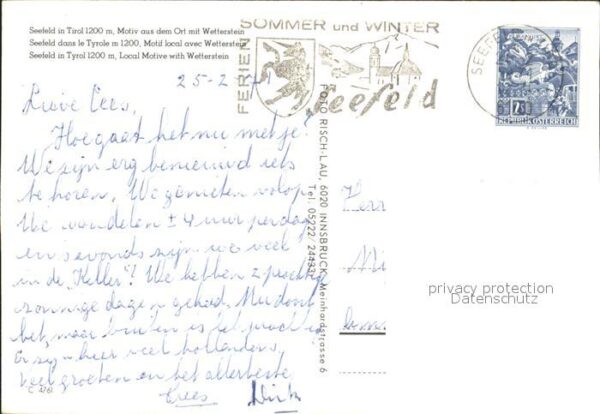 Seefeld in Tirol 1200 m, Motiv aus dem Ort mit Wetterstein
Seefeld dans le Tyrole m 1200, Motif local avec Wetterstein
Seefeld in Tyrol 1200 m, Local Motive with Wetterstein
SOMMER und WINTER
FERIEN
Seefeld
SEEF
REPUBLIK ÖSTERREICH
25-2-
Lieve Cees,
Hoe gaat het nu met je?
We zijn erg benieuwd iets
te horen. We genieten volop
We wandelen ± 4 uur per dag
en 's avonds zijn we veel
in de "Keller"! We hebben 2 prachtig
zonnige dagen gehad. Nu dooit
het, maar buiten is het prachtig
Er zijn hier veel hollanders
Veel groeten en het allerbeste
Cees Dirk
C 4761
FOTO RISCH-LAU, 6020 INNSBRUCK, Meinhardstrasse 6
Tel. 05222/24433
Herr
privacy protection
Datenschutz